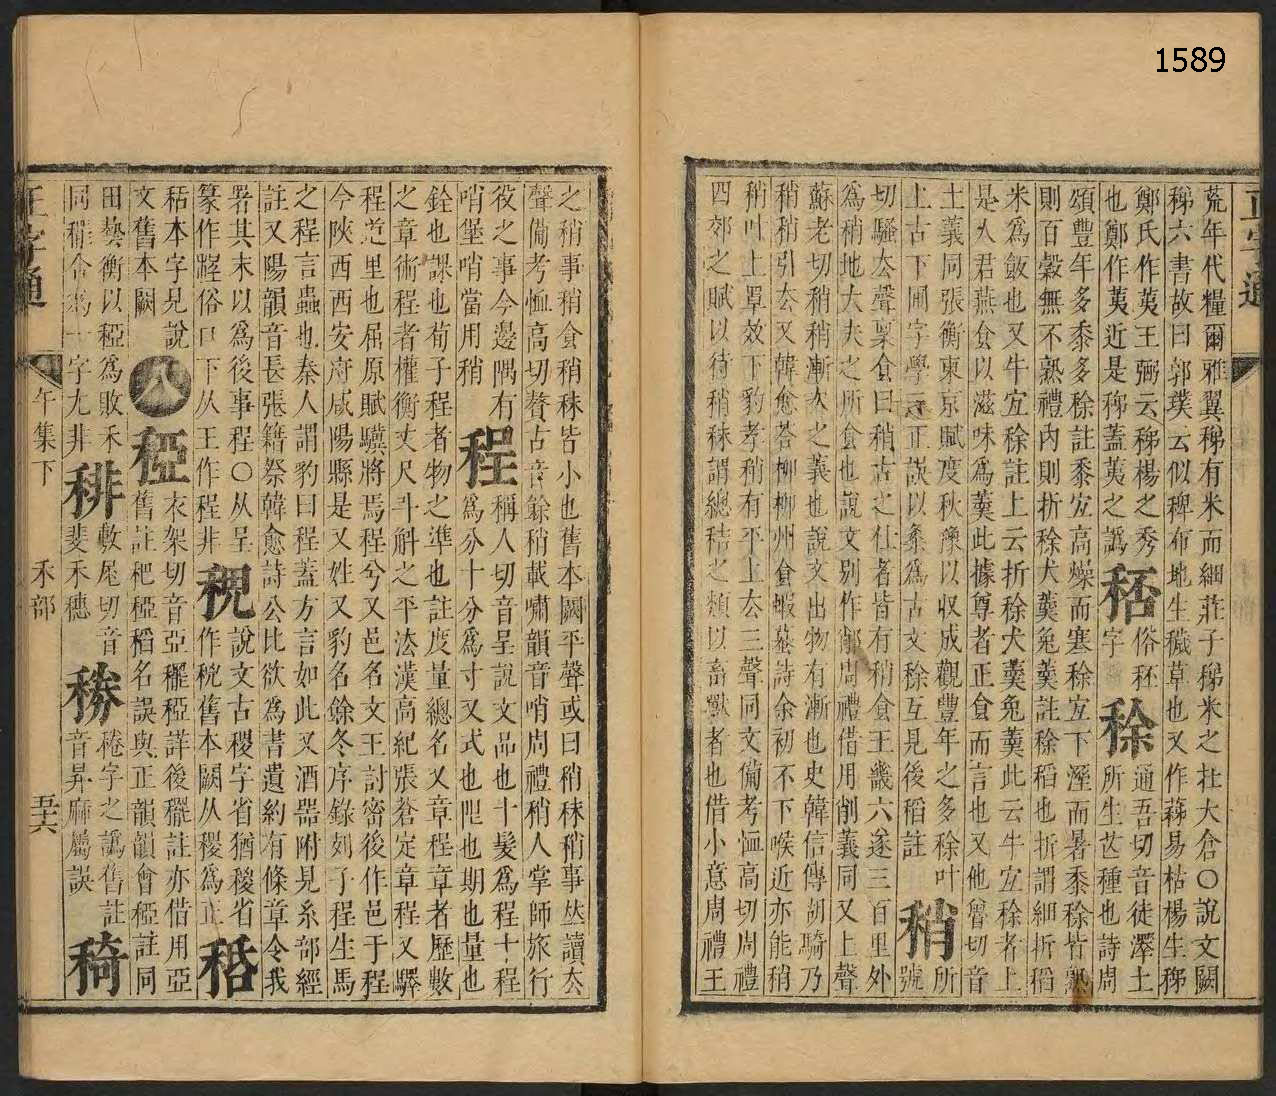 1589
正字通
荒年代糧爾雅翼稊有米而細莊子稊米之杜大倉〇說文闕
稊六書故曰郭璞云似稗布地生穢草也又作蕛易枯楊生稊
鄭氏作荑王弼云稊楊之秀
也鄭作荑近是稊蓋荑之譌 䅏 俗秠字 稌 通吾切音徒澤土所生芑種也詩周
頌豐年多黍多稌註黍宜高燥而寒稌宜下溼而暑黍稌皆熟
則百穀無不熟禮內則折稌犬羹兔羹註稌稻也折謂細折稻
米為飯也又牛宜稌註上云折稌犬羹兔羹此云牛宜稌者上
是人君燕食以滋味為羹此據尊者正食而言也又他魯切音
土義同張衡東京賦度秋豫以收成觀豐年之多稌叶
上古下圃字學正誤以為古文稌互見後稻註 稍 所號
切騷去聲稟食曰稍古之仕者皆有稍食王畿六遂三百里外
為稍地大夫之所食也說文別作䣝周禮借用削義同又上聲
蘇老切稍稍漸次之義也說文出物有漸也史韓信傳胡騎乃
稍稍引去又韓愈荅柳柳州食蝦蟇詩余初不下喉近亦能稍
稍叶上罩效下豹孝稍有平上去三聲同文備考恤高切周禮
四郊之賦以待稍秣謂總秸之類以畜獸者也借小意周禮王
之稍事稍食稍秣皆小也舊本闕平聲或曰稍秣稍事夶讀去
聲備考恤高切贅古音餘稍載嘯韻音哨周禮稍人掌師旅行
役之事今邊隅有
哨堡哨當用稍 程 稱人切音呈說文品也十髮為程十程為分十分為寸又式也限也期也量也
銓也課也荀子程者物之準也註度量總名又章程章者歷數
之章術程者權衡丈尺斗斛之平法漢高紀張蒼定章程又驛
程道里也屈原賦驥將焉程兮又邑名文王討密後作邑于程
今陝西西安府咸陽縣是又姓又豹名餘冬序錄列子程生馬
之程言蟲也秦人謂豹曰程蓋方言如此又酒器附見糸部經
註又陽韻音長張籍祭韓愈詩公比欲為書遺約有條章令我
署其末以為後事程〇从呈
篆作俗口下从王作程非 䅍 說文古稷字省猶稯省作䅍舊本闕从稷為正 䅧
秳本字見說
文舊本闕 八 稏 衣架切音亞䆉稏詳後䆉註亦借用亞舊註秅稏稻名誤與正韻韻會稏註同
田藝衡以稏為敗禾
同稏合為一字尤非 䅐 敷尾切音斐禾穗 䅈 䅈字之譌舊註音昇麻屬誤 䅲
正字通
午集下
禾部
五十六